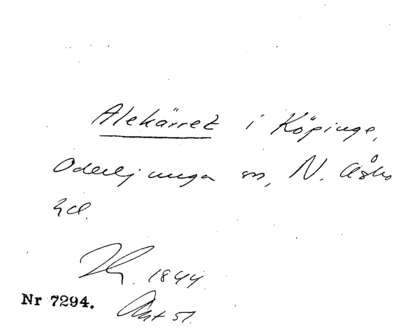 Alekärret i Köpinge,
Oderljunga sn, N. Åsbo
hd.
1844
Nr 7294. Akt 51.